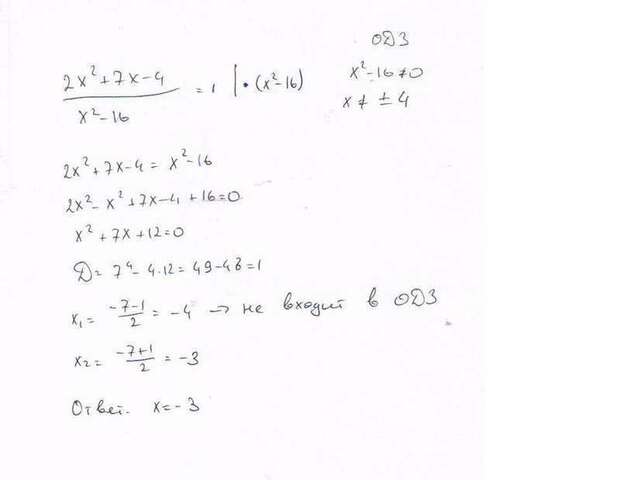 ОДЗ
x²-16≠0
x ≠ ± 4
(2x²+7x-4)/(x²-16) = 1 | • (x²-16)
2x²+7x-4 = x²-16
2x²-x²+7x-4+16=0
x²+7x+12=0
D= 7²-4·12=49-48=1
x₁= (-7-1)/2 = -4 → не входит в ОДЗ
x₂= (-7+1)/2 = -3
Ответ. x=-3